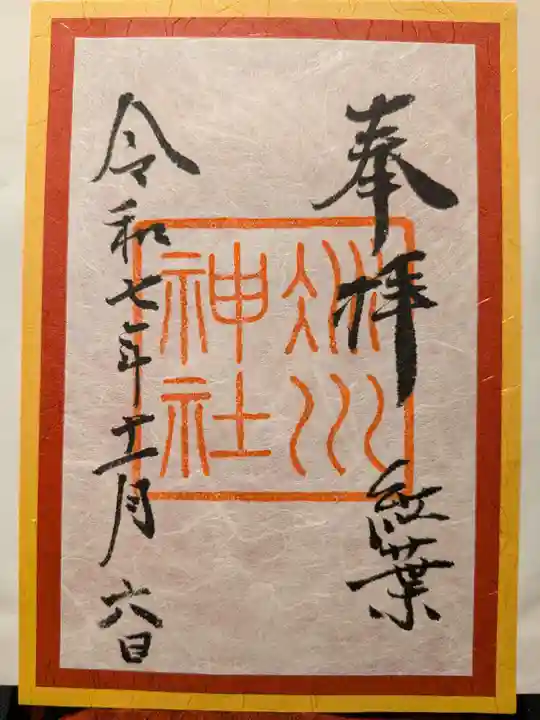 奉拝
紅葉
冰川
神社
令和七年十一月六日